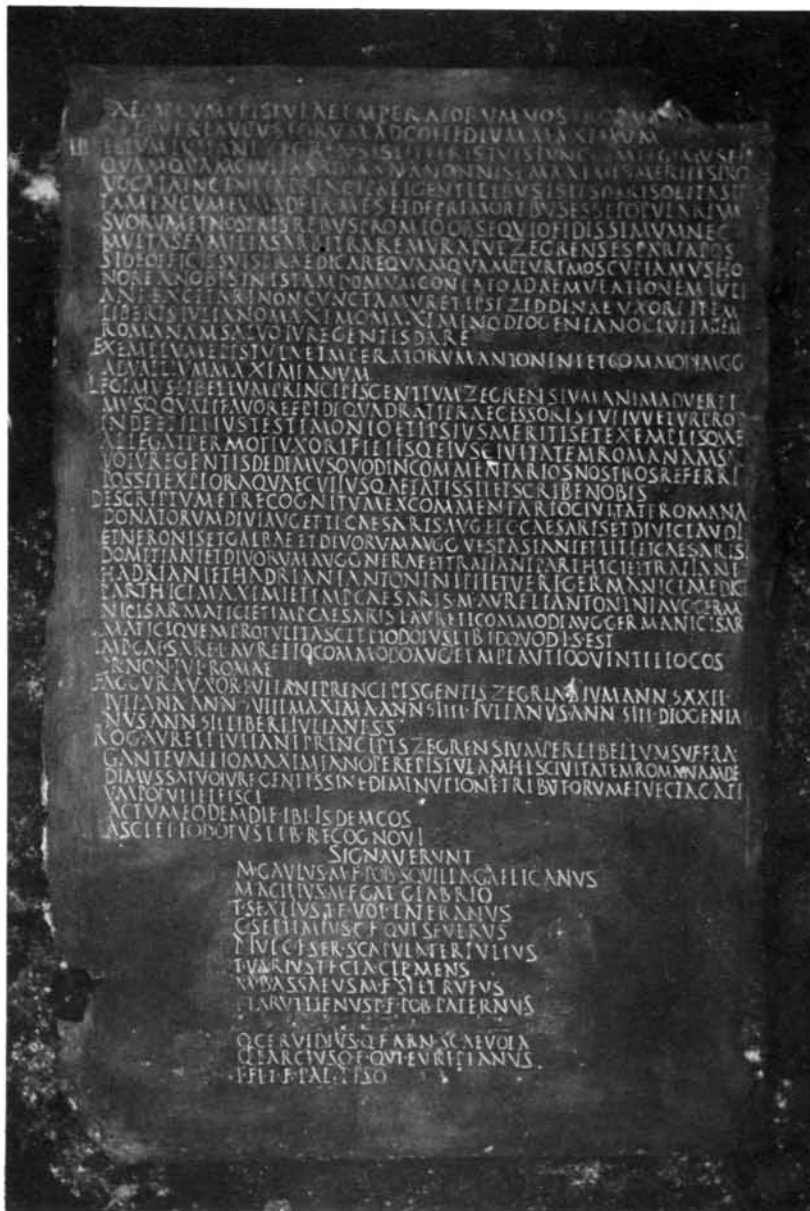 EXEMPLVM EPISTVLAE IMPERATORVM NOSTRORVM
VERI AVGVSTORVM AD COIIEDIVM MAXIMVM
LIBELLVM IVLIANI ZEGRENSIS LITTERIS TVIS IVNCTVM LEGIMVS ET
QVAMQVAM CIVITAS ROMANA NON NISI MAXIMIS MERITIS PRO
VOCATA INDVLGENTIA PRINCIPALI GENTILIBVS ISTIS DARI SOLITA SIT
TAMEN CVM EVM ADFIRMES ET DE PRIMORIBVS ESSE POPVLARIVM
SVORVM ET NOSTRIS REBVS PROMTO OBSEQVIO FIDISSIMVM NEC
MVLTAS FAMILIAS ARBITRAREMVR APVT ZEGRENSES PARIA POS
SIT DE OFFICIS SVIS PRAEDICARE QVAMQVAM PLVRIMOS CVPIAMVS HO
NORE A NOBIS IN ISTAM DOMVM CONLATO AD AEMVLATIONEM IVLI
ANI EXCITARI NON CVNCTAMVR ET IPSI ZIDDINAE VXORI ITEM
LIBERIS IVLIANO MAXIMO MAXIMINO DIOGENIANO CIVITATEM
ROMANAM SALVO IVRE GENTIS DARE
EXEMPLVM EPISTVLAE IMPERATORVM ANTONINI ET COMMODI AVGG
AD VALLIVM MAXIMIANVM
LEGIMVS LIBELLVM PRINCIPIS GENTIVM ZEGRENSIVM ANIMADVERTI
MVSQ QVALI FAVORE EPIDI QVADRATI PRAECESSORIS TVI IVVETVR PRO
INDE ET ILLIVS TESTIMONIO ET IPSIVS MERITIS ET EXEMPLIS QVAE
ALLEGAT PERMOTI VXORI FILIISQ EIVS CIVITATEM ROMANAM SA
VO IVRE GENTIS DEDIMVS QVOD IN COMMENTARIOS NOSTROS REFERRI
POSSIT EXPLORA QVAE CVIIVSQ AETATIS SIT ET SCRIBE NOBIS
DESCRIPTVM ET RECOGNITVM EX COMMENTARIO CIVITATE ROMANA
DONATORVM DIVI AVG ET TI CAESARIS AVG ET C CAESARIS ET DIVI CLAVDI
ET NERONIS ET GALBAE ET DIVORVM AVGG VESPASIANI ET TITI ET CAESARIS
DOMITIANI ET DIVORVM AVGG NERAE ET TRAIANI PARTHICI ET TRAIANI
HADRIANI ET HADRIANI ANTONINI PII ET VERI GERMANICI MEDICI
PARTHICI MAXIMI ET IMP CAESARIS M AVRELI ANTONINI AVG GERM
NICI SARMATICI ET IMP CAESARIS L AVRELI COMMODI AVG GERMANICI SAR
MATICI QVEM PROTVLIT ASCLEPIODOTVS LIB ID QVOD I S EST
IMP CAESARE L AVRELIO COMMODO AVG ET M PLAVTIO QVINTILLO COS
PR NON IVL ROMAE
FAGGVRA VXOR IVLIANI PRINCIPIS GENTIS ZEGRENSIVM ANN XXII
IVLIANA ANN VIII MAXIMA ANN IIII IVLIANVS ANN III DIOGENIA
NVS ANN II LIBERI IVLIANI S S
ROG AVRELI IVLIANI PRINCIPIS ZEGRENSIVM PER LIBELLVM SVFFRA
GANTE VALLIO MAXIMIANO PER EPISTVLAM HIS CIVITATEM ROMANAM DE
DIMVS SALVO IVRE GENTIS SINE DIMINVTIONE TRIBVTORVM ET VECTIGALI
VM POPVLI ET FISCI
ACTVM EODEM DIE IBI ISDEM COS
ASCLEPIODOTVS LIB RECOGNOVI
SIGNAVERVNT
M GAVIVS M F POB SQVILLA GALLICANVS
M ACILIVS M F GAL GLABRIO
T SEXTIVS T F VOT LATERANVS
C SEPTIMIVS C F QVI SEVERVS
P IVL C F SER SCAPVLA TERTVLIVS
T VARIVS T F CLA CLEMENS
M BASSAEVS M F STL RVFVS
P TARVTTIENVS P F POB PATERNVS
Q CERVIDIVS Q F ARN SCAEVOLA
Q LARCIVS Q F QVI EVRIPIANVS
T FL T F PAL PISO